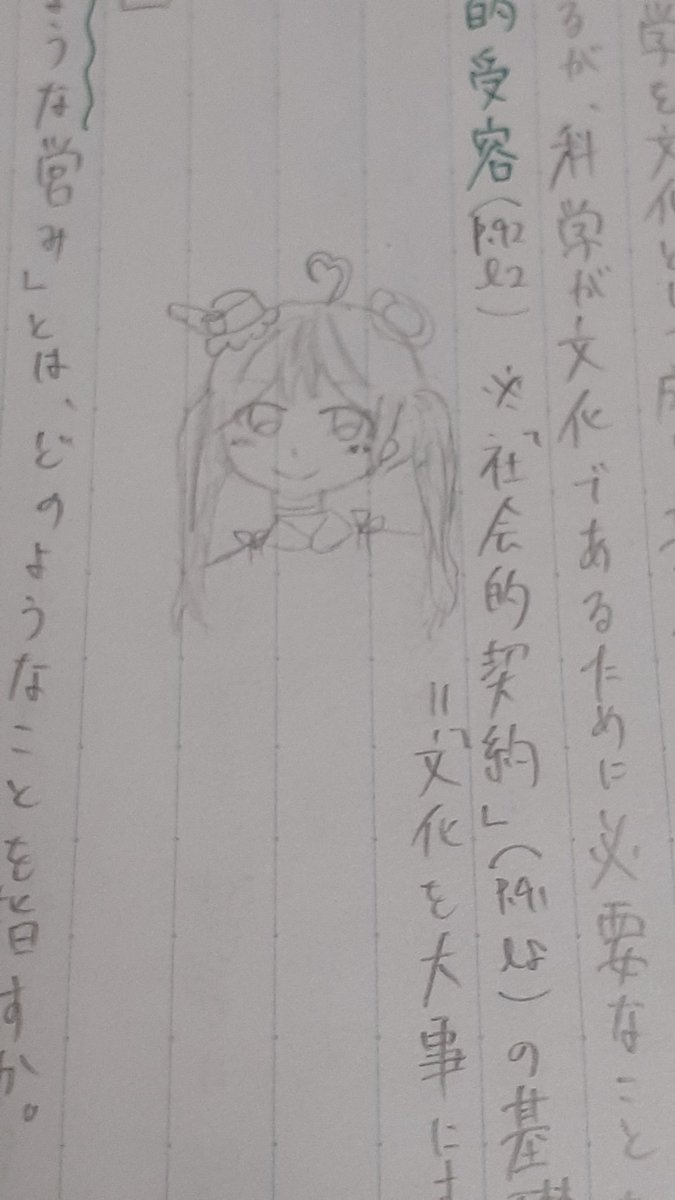 学を文化として成
るが、科学が文化であるために必要なこと
的受容(p.92 l2) ※「社会的契約」(p.91 l8)の基
=「文化を大事に
ような営み」とは、どのようなことを指すか。